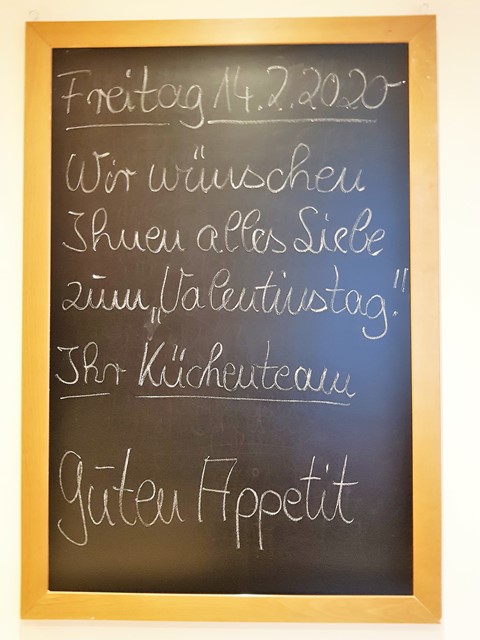 Freitag 14.2.2020
Wir wünschen
Ihnen alles Liebe
zum „Valentinstag."
Ihr Küchenteam
Guten Appetit